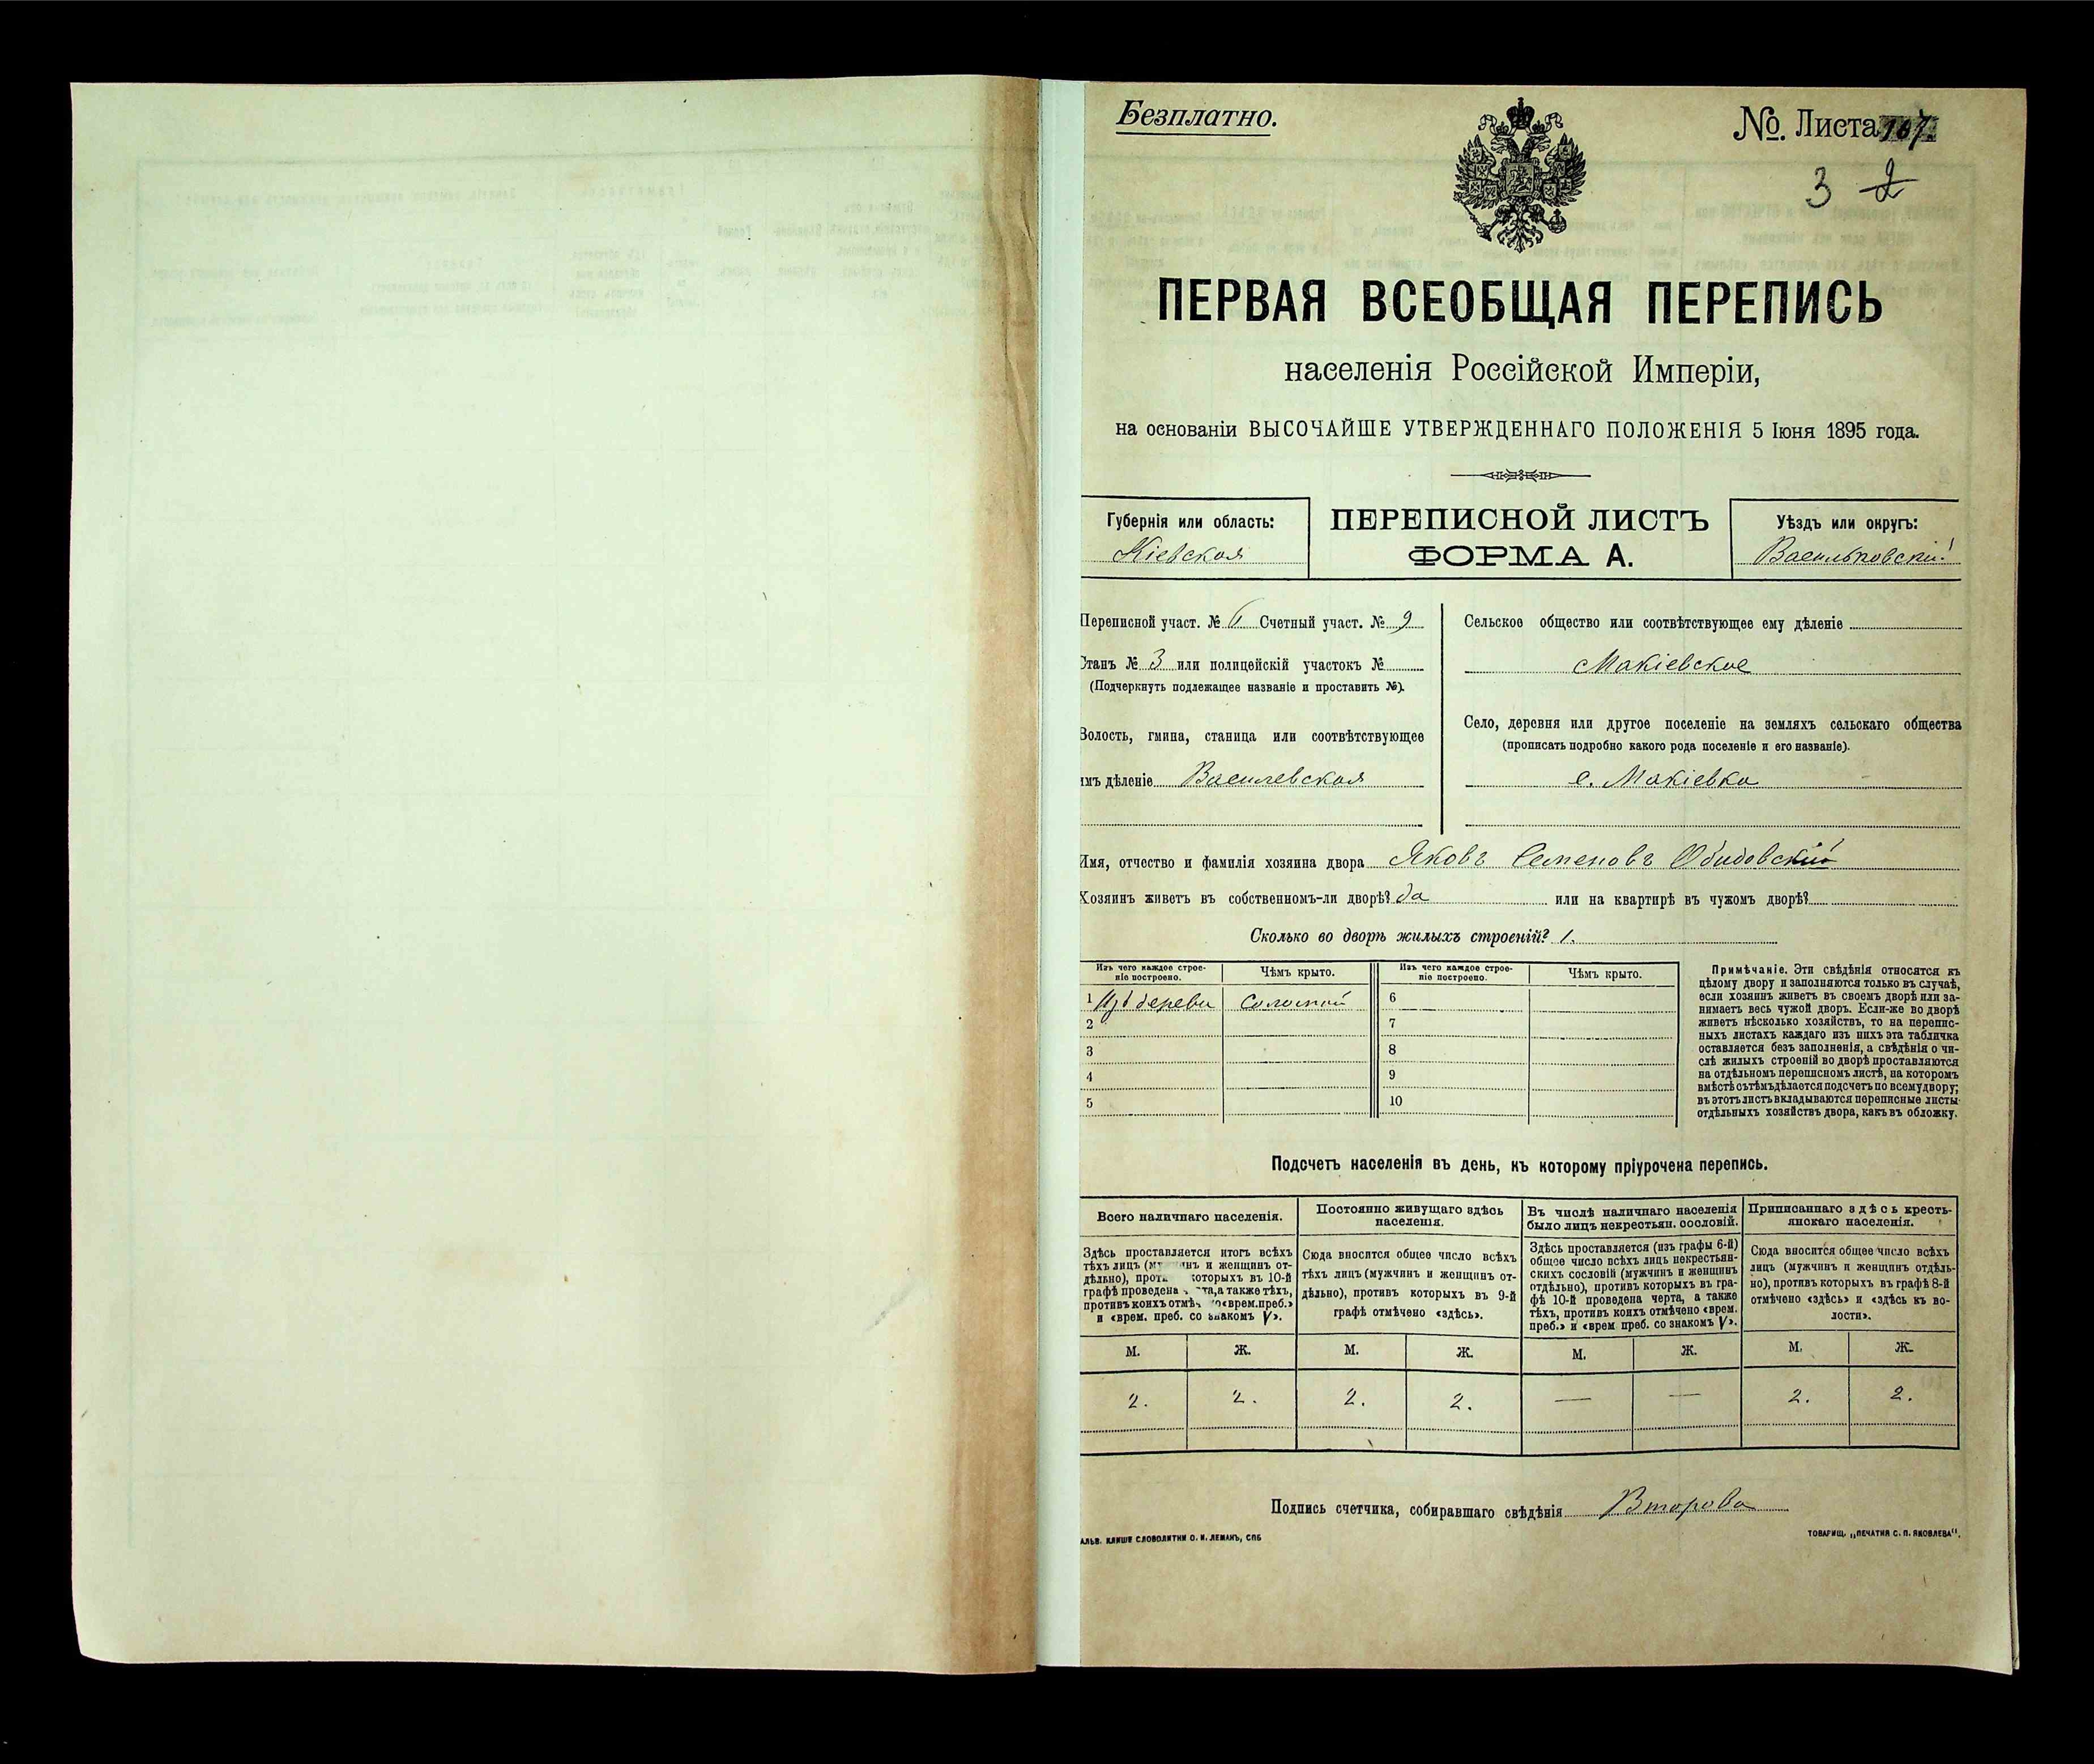 Безплатно.
№. Листа 107.
3 2
ПЕРВАЯ ВСЕОБЩАЯ ПЕРЕПИСЬ
населенія Россійской Имперіи,
на основаніи ВЫСОЧАЙШЕ УТВЕРЖДЕННАГО ПОЛОЖЕНІЯ 5 Іюня 1895 года.
Губернія или область:
Кіевская
ПЕРЕПИСНОЙ ЛИСТЪ
ФОРМА А.
Уѣздъ или округъ:
Васильковскій
Переписной участ. № 6 Счетный участ. № 9
Станъ № 3 или полицейскій участокъ №
(Подчеркнуть подлежащее названіе и проставить №).
Волость, гмина, станица или соотвѣтствующее
имъ дѣленіе Василевская
Сельское общество или соотвѣтствующее ему дѣленіе
Макіевское
Село, деревня или другое поселеніе на земляхъ сельскаго общества
(прописать подробно какого рода поселеніе и его названіе).
с. Макіевка
Имя, отчество и фамилія хозяина двора Яковъ Семеновъ Обидовскій
Хозяинъ живетъ въ собственномъ-ли дворѣ? да или на квартирѣ въ чужомъ дворѣ?
Сколько во дворѣ жилыхъ строеній? 1.
Изъ чего каждое строе-
ніе построено.
Чѣмъ крыто.
Изъ чего каждое строе-
ніе построено.
Чѣмъ крыто.
1 Изъ дерева Соломой 6
2 7
3 8
4 9
5 10
Примѣчаніе. Эти свѣдѣнія относятся къ
цѣлому двору и заполняются только въ случаѣ,
если хозяинъ живетъ въ своемъ дворѣ или за-
нимаетъ весь чужой дворъ. Если-же во дворѣ
живетъ нѣсколько хозяйствъ, то на перепис-
ныхъ листахъ каждаго изъ нихъ эта табличка
оставляется безъ заполненія, а свѣдѣнія о чи-
слѣ жилыхъ строеній во дворѣ проставляются
на отдѣльномъ переписномъ листѣ, на которомъ
вмѣстѣ съ тѣмъ дѣлается подсчетъ по всему двору;
въ этотъ листъ вкладываются переписные листы
отдѣльныхъ хозяйствъ двора, какъ въ обложку.
Подсчетъ населенія въ день, къ которому пріурочена перепись.
Всего наличнаго населенія.
Здѣсь проставляется итогъ всѣхъ
тѣхъ лицъ (м инъ и женщинъ от-
дѣльно), проти которыхъ въ 10-й
графѣ проведена та, а также тѣхъ,
противъ коихъ отмѣ о «врем. преб.»
и «врем. преб. со знакомъ V».
Постоянно живущаго здѣсь
населенія.
Сюда вносится общее число всѣхъ
тѣхъ лицъ (мужчинъ и женщинъ от-
дѣльно), противъ которыхъ въ 9-й
графѣ отмѣчено «здѣсь».
Въ числѣ наличнаго населенія
было лицъ некрестьян. сословій.
Здѣсь проставляется (изъ графы 6-й)
общее число всѣхъ лицъ некрестьян-
скихъ сословій (мужчинъ и женщинъ
отдѣльно), противъ которыхъ въ гра-
фѣ 10-й проведена черта, а также
тѣхъ, противъ коихъ отмѣчено «врем.
преб.» и «врем преб. со знакомъ V».
Приписаннаго здѣсь кресть-
янскаго населенія.
Сюда вносится общее число всѣхъ
лицъ (мужчинъ и женщинъ отдѣль-
но), противъ которыхъ въ графѣ 8-й
отмѣчено «здѣсь» и «здѣсь въ во-
лости».
М. Ж. М. Ж. М. Ж. М. Ж.
2. 2. 2. 2. — — 2. 2.
Подпись счетчика, собиравшаго свѣдѣнія Второва
АЛЬВ. КЛИШЕ СЛОВОЛИТНИ О. И. ЛЕМАНЪ, СПБ
ТОВАРИЩ. „ПЕЧАТНЯ С. П. ЯКОВЛЕВА".